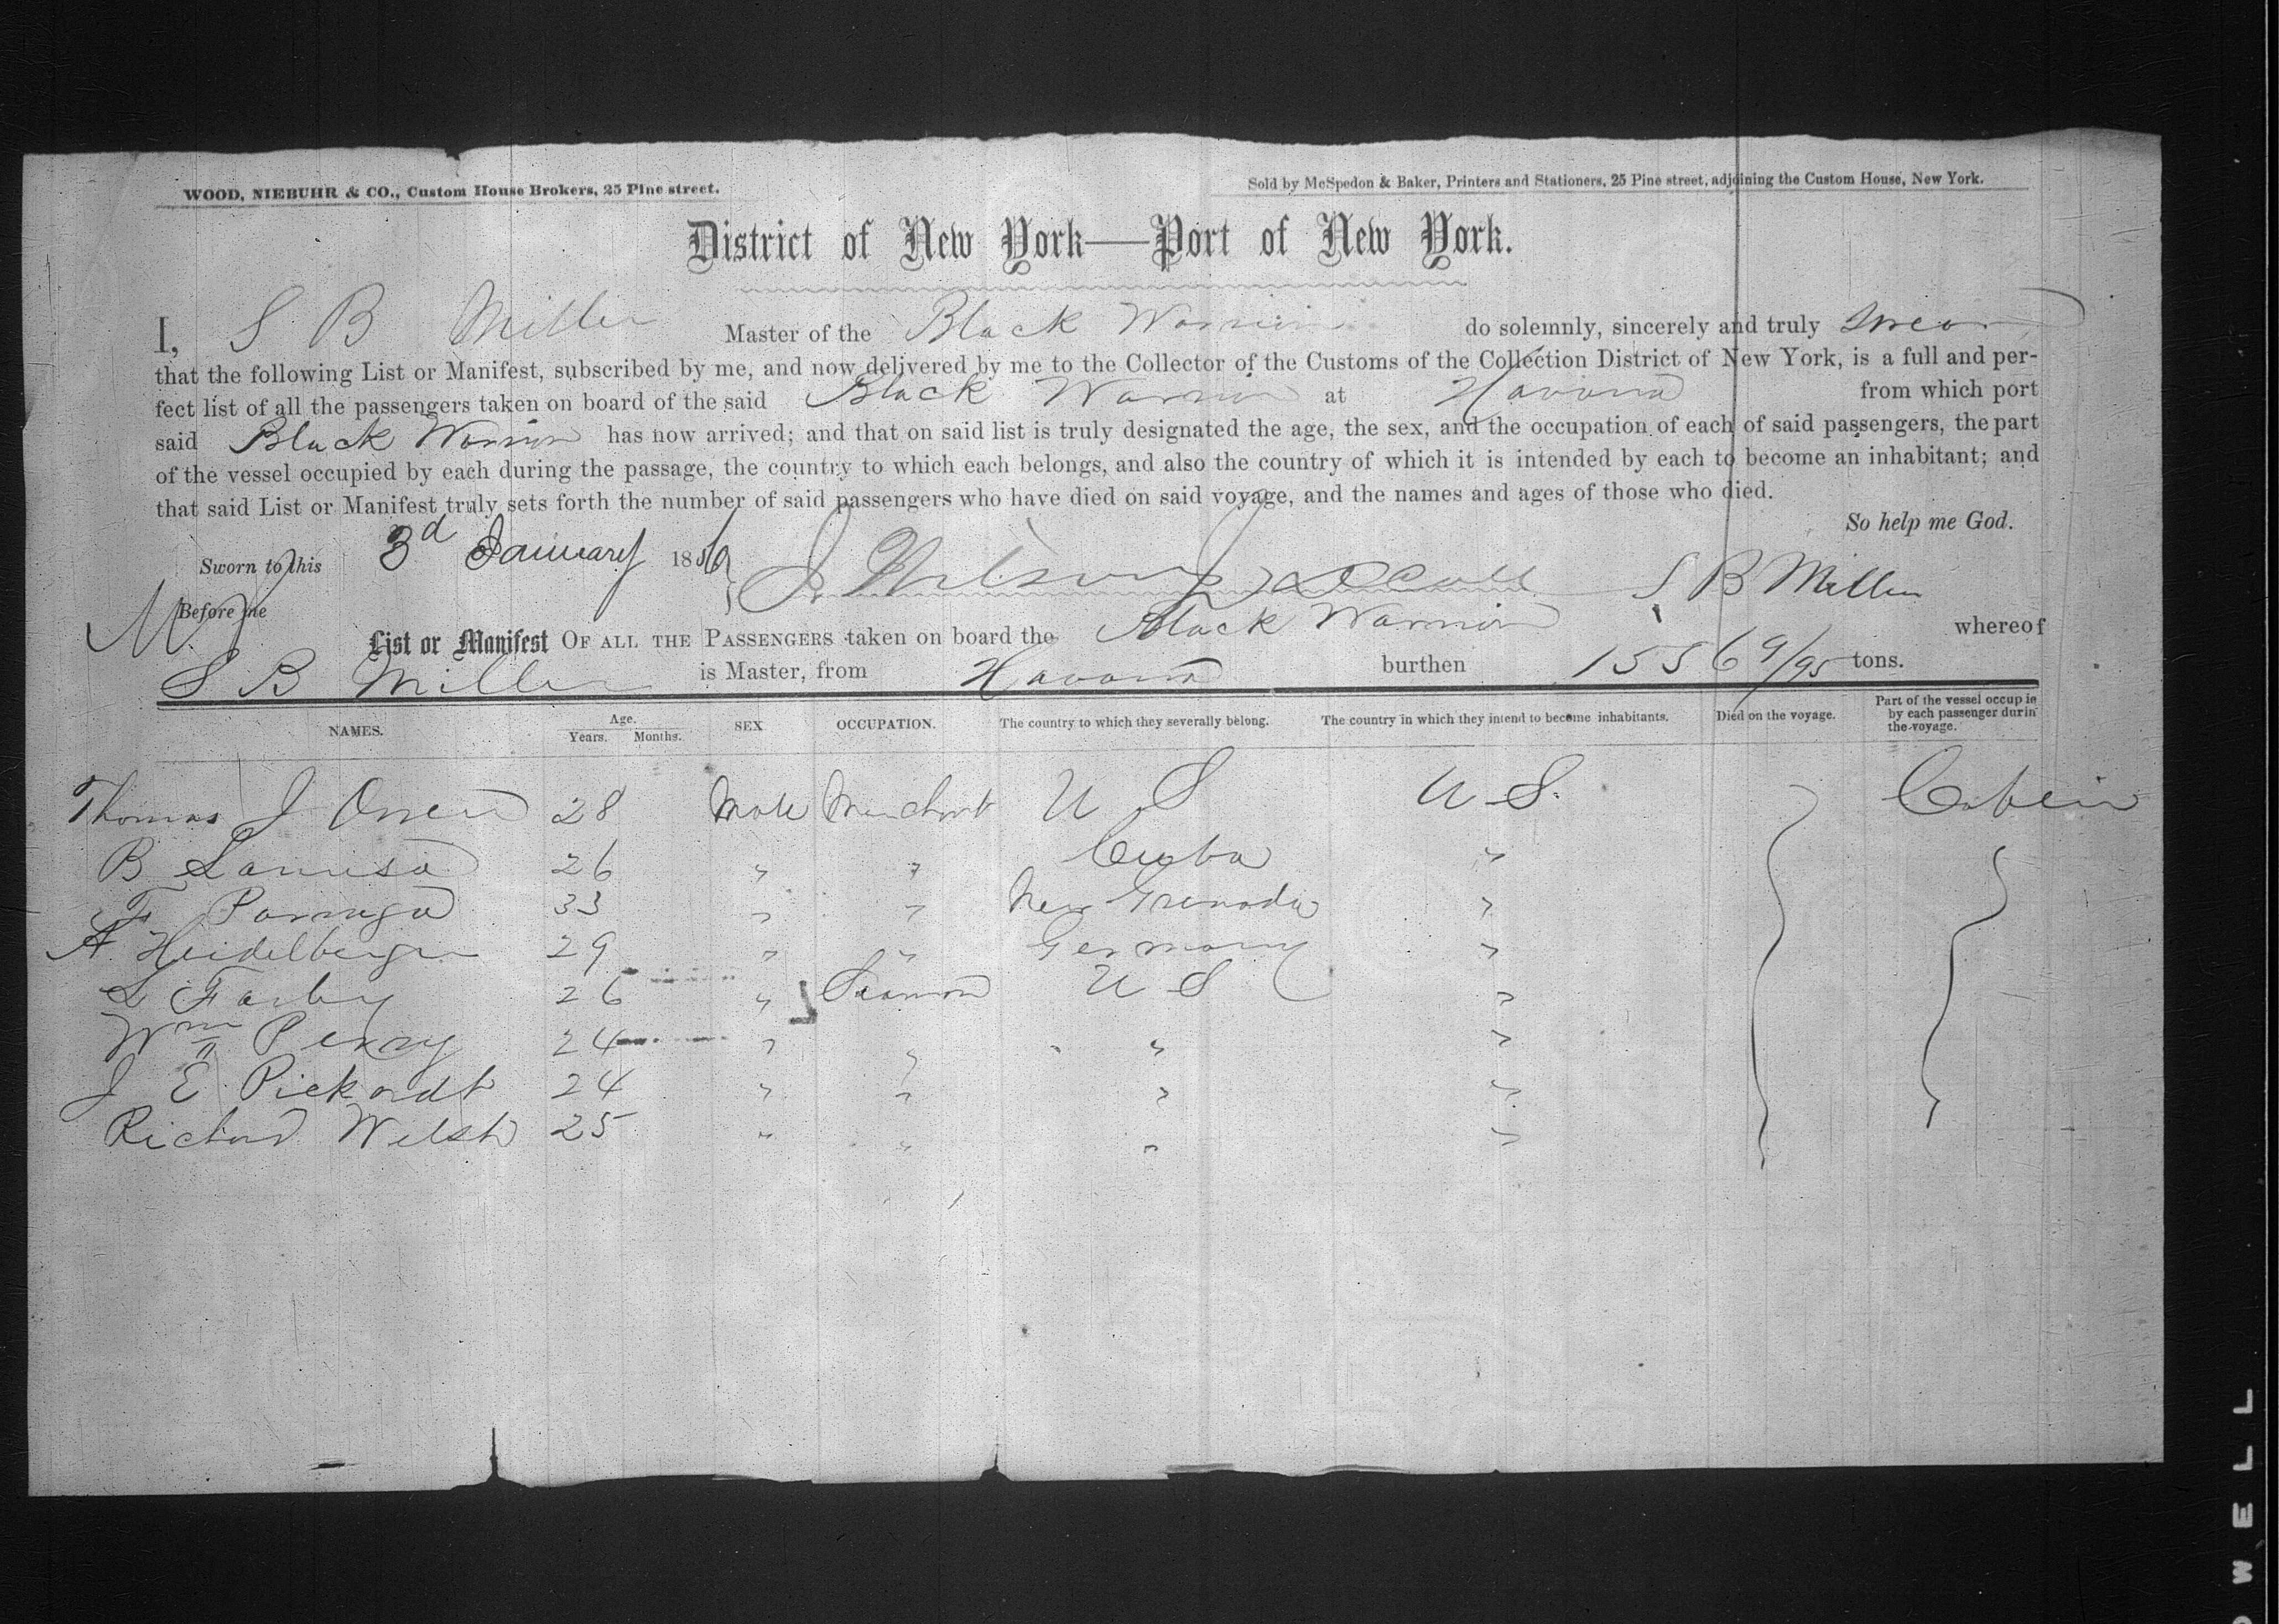 WOOD, NIEBUHR & CO., Custom House Brokers, 25 Pine street.
Sold by McSpedon & Baker, Printers and Stationers, 25 Pine street, adjoining the Custom House, New York.
District of New York—Port of New York.
I, S B Miller Master of the Black Warrior do solemnly, sincerely and truly swear
that the following List or Manifest, subscribed by me, and now delivered by me to the Collector of the Customs of the Collection District of New York, is a full and per-
fect list of all the passengers taken on board of the said Black Warrior at Havana from which port
said Black Warrior has now arrived; and that on said list is truly designated the age, the sex, and the occupation of each of said passengers, the part
of the vessel occupied by each during the passage, the country to which each belongs, and also the country of which it is intended by each to become an inhabitant; and
that said List or Manifest truly sets forth the number of said passengers who have died on said voyage, and the names and ages of those who died.
So help me God.
Sworn to this 3d January 18 S B Miller
Before me
List or Manifest OF ALL THE PASSENGERS taken on board the Black Warrior whereof
S B Miller is Master, from Havana burthen 1556 9/95 tons.
NAMES. Age. Years. Months. SEX OCCUPATION. The country to which they severally belong. The country in which they intend to become inhabitants. Died on the voyage. Part of the vessel occupie by each passenger durin the voyage.
Thomas J 28 Male Merchant U S U S. Cabin
B 26 " " Cuba "
F 33 " " New Grenada "
A. Heidelberger 29 " " Germany "
L Farley 26 " Seaman U S "
Wm Perry 24 " " " "
J E Pickardt 24 " " " "
Richard Welsh 25 " " " "
WELL